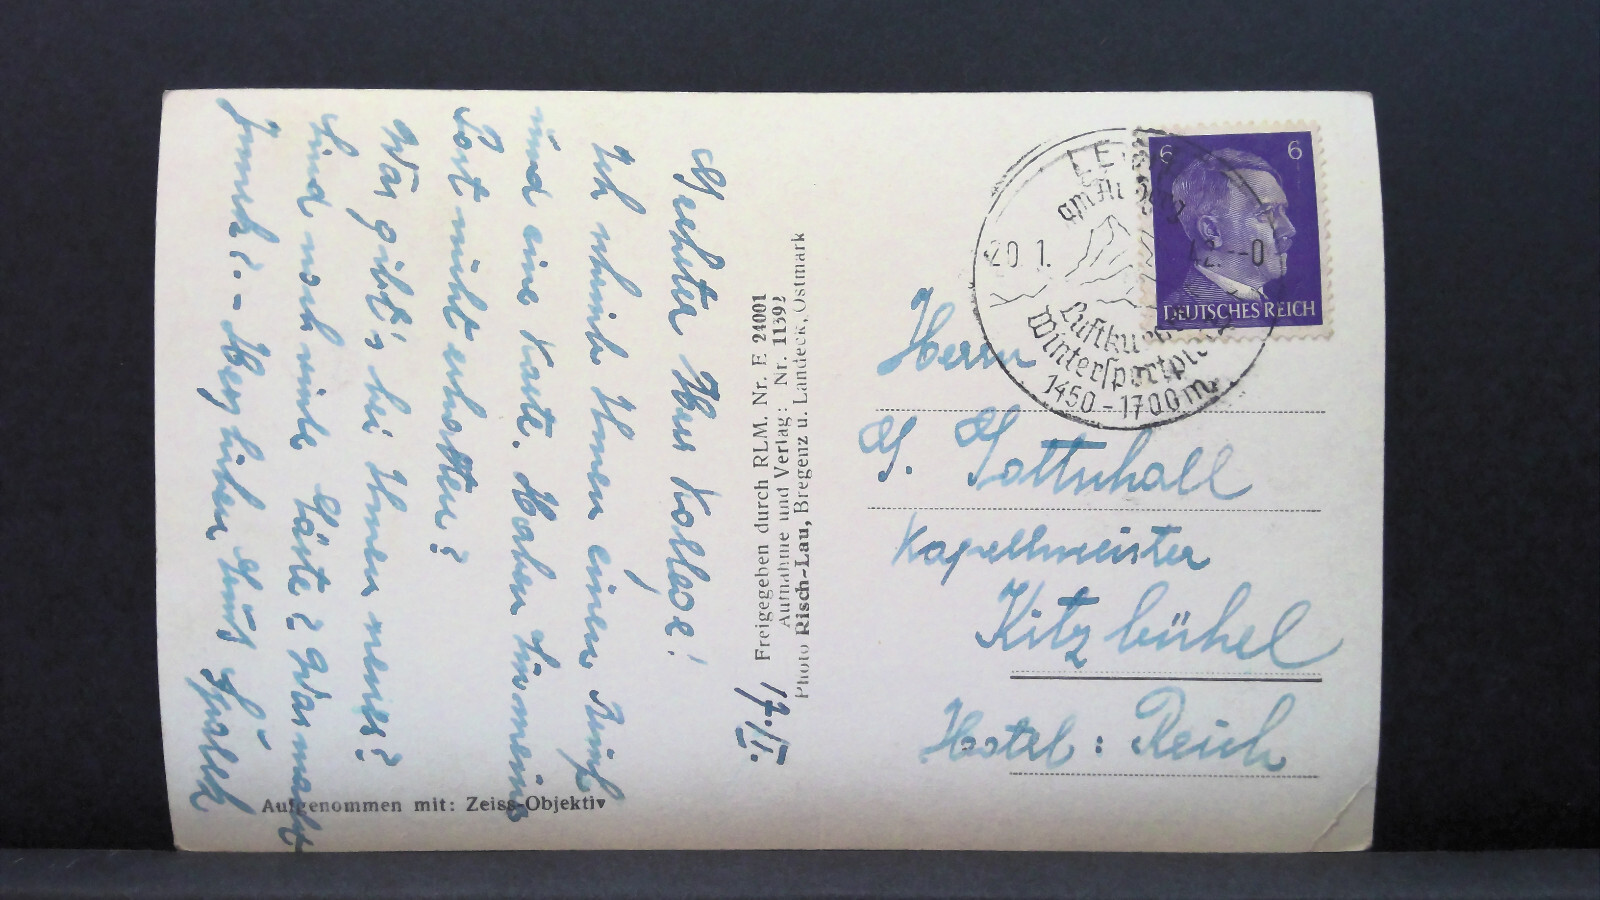 Geehrter Herr Kollege!
Ich schreibe Ihnen einen Brief
und eine Karte. Haben Sie meine
Post nicht erhalten?
Was gibt's bei Ihnen neues?
Sind noch viele Gäste? Was macht
Franek? - Herzlichen Gruß
17./II.
Freigegeben durch RLM. Nr. E 24001
Aufnahme und Verlag: Nr. 11392
Photo Risch-Lau, Bregenz u. Landeck, Ostmark
Aufgenommen mit: Zeiss-Objektiv
6 6
DEUTSCHES REICH
20. 1. 42.--0
Luftkur
Wintersport
1450-1700m
Herrn
G. Gottschall
Kapellmeister
Kitzbühel
Hotel: Reich